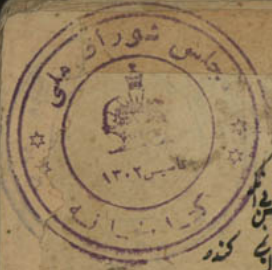 مجلس شورای ملی
تاسیس ۱۳۰۲
کتابخانه
کند